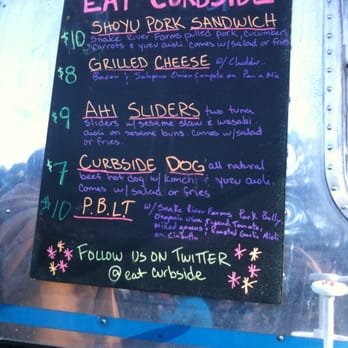 EAT CURBSIDE
$10 SHOYU PORK SANDWICH
Snake River Farms pulled pork, cucumber,
carrots & yuzu aioli. Comes w/salad or fries
$8 GRILLED CHEESE w/ Cheddar,
Bacon & Jalapeno Onion Compote on Pan a Mie
$9 AHI SLIDERS two tuna
sliders w/ sesame slaw & wasabi
aioli on sesame buns. Comes w/salad
or fries.
$7 CURBSIDE DOG all natural
beef hot dog w/ Kimchi & yuzu aioli.
Comes w/ salad or fries
$10 P.B.L.T w/ Snake River Farms Pork Belly,
Organic vine ripened Tomato,
Mixed greens & Roasted Garlic Aioli
on Ciabatta
FOLLOW US ON TWITTER
@ eat curbside